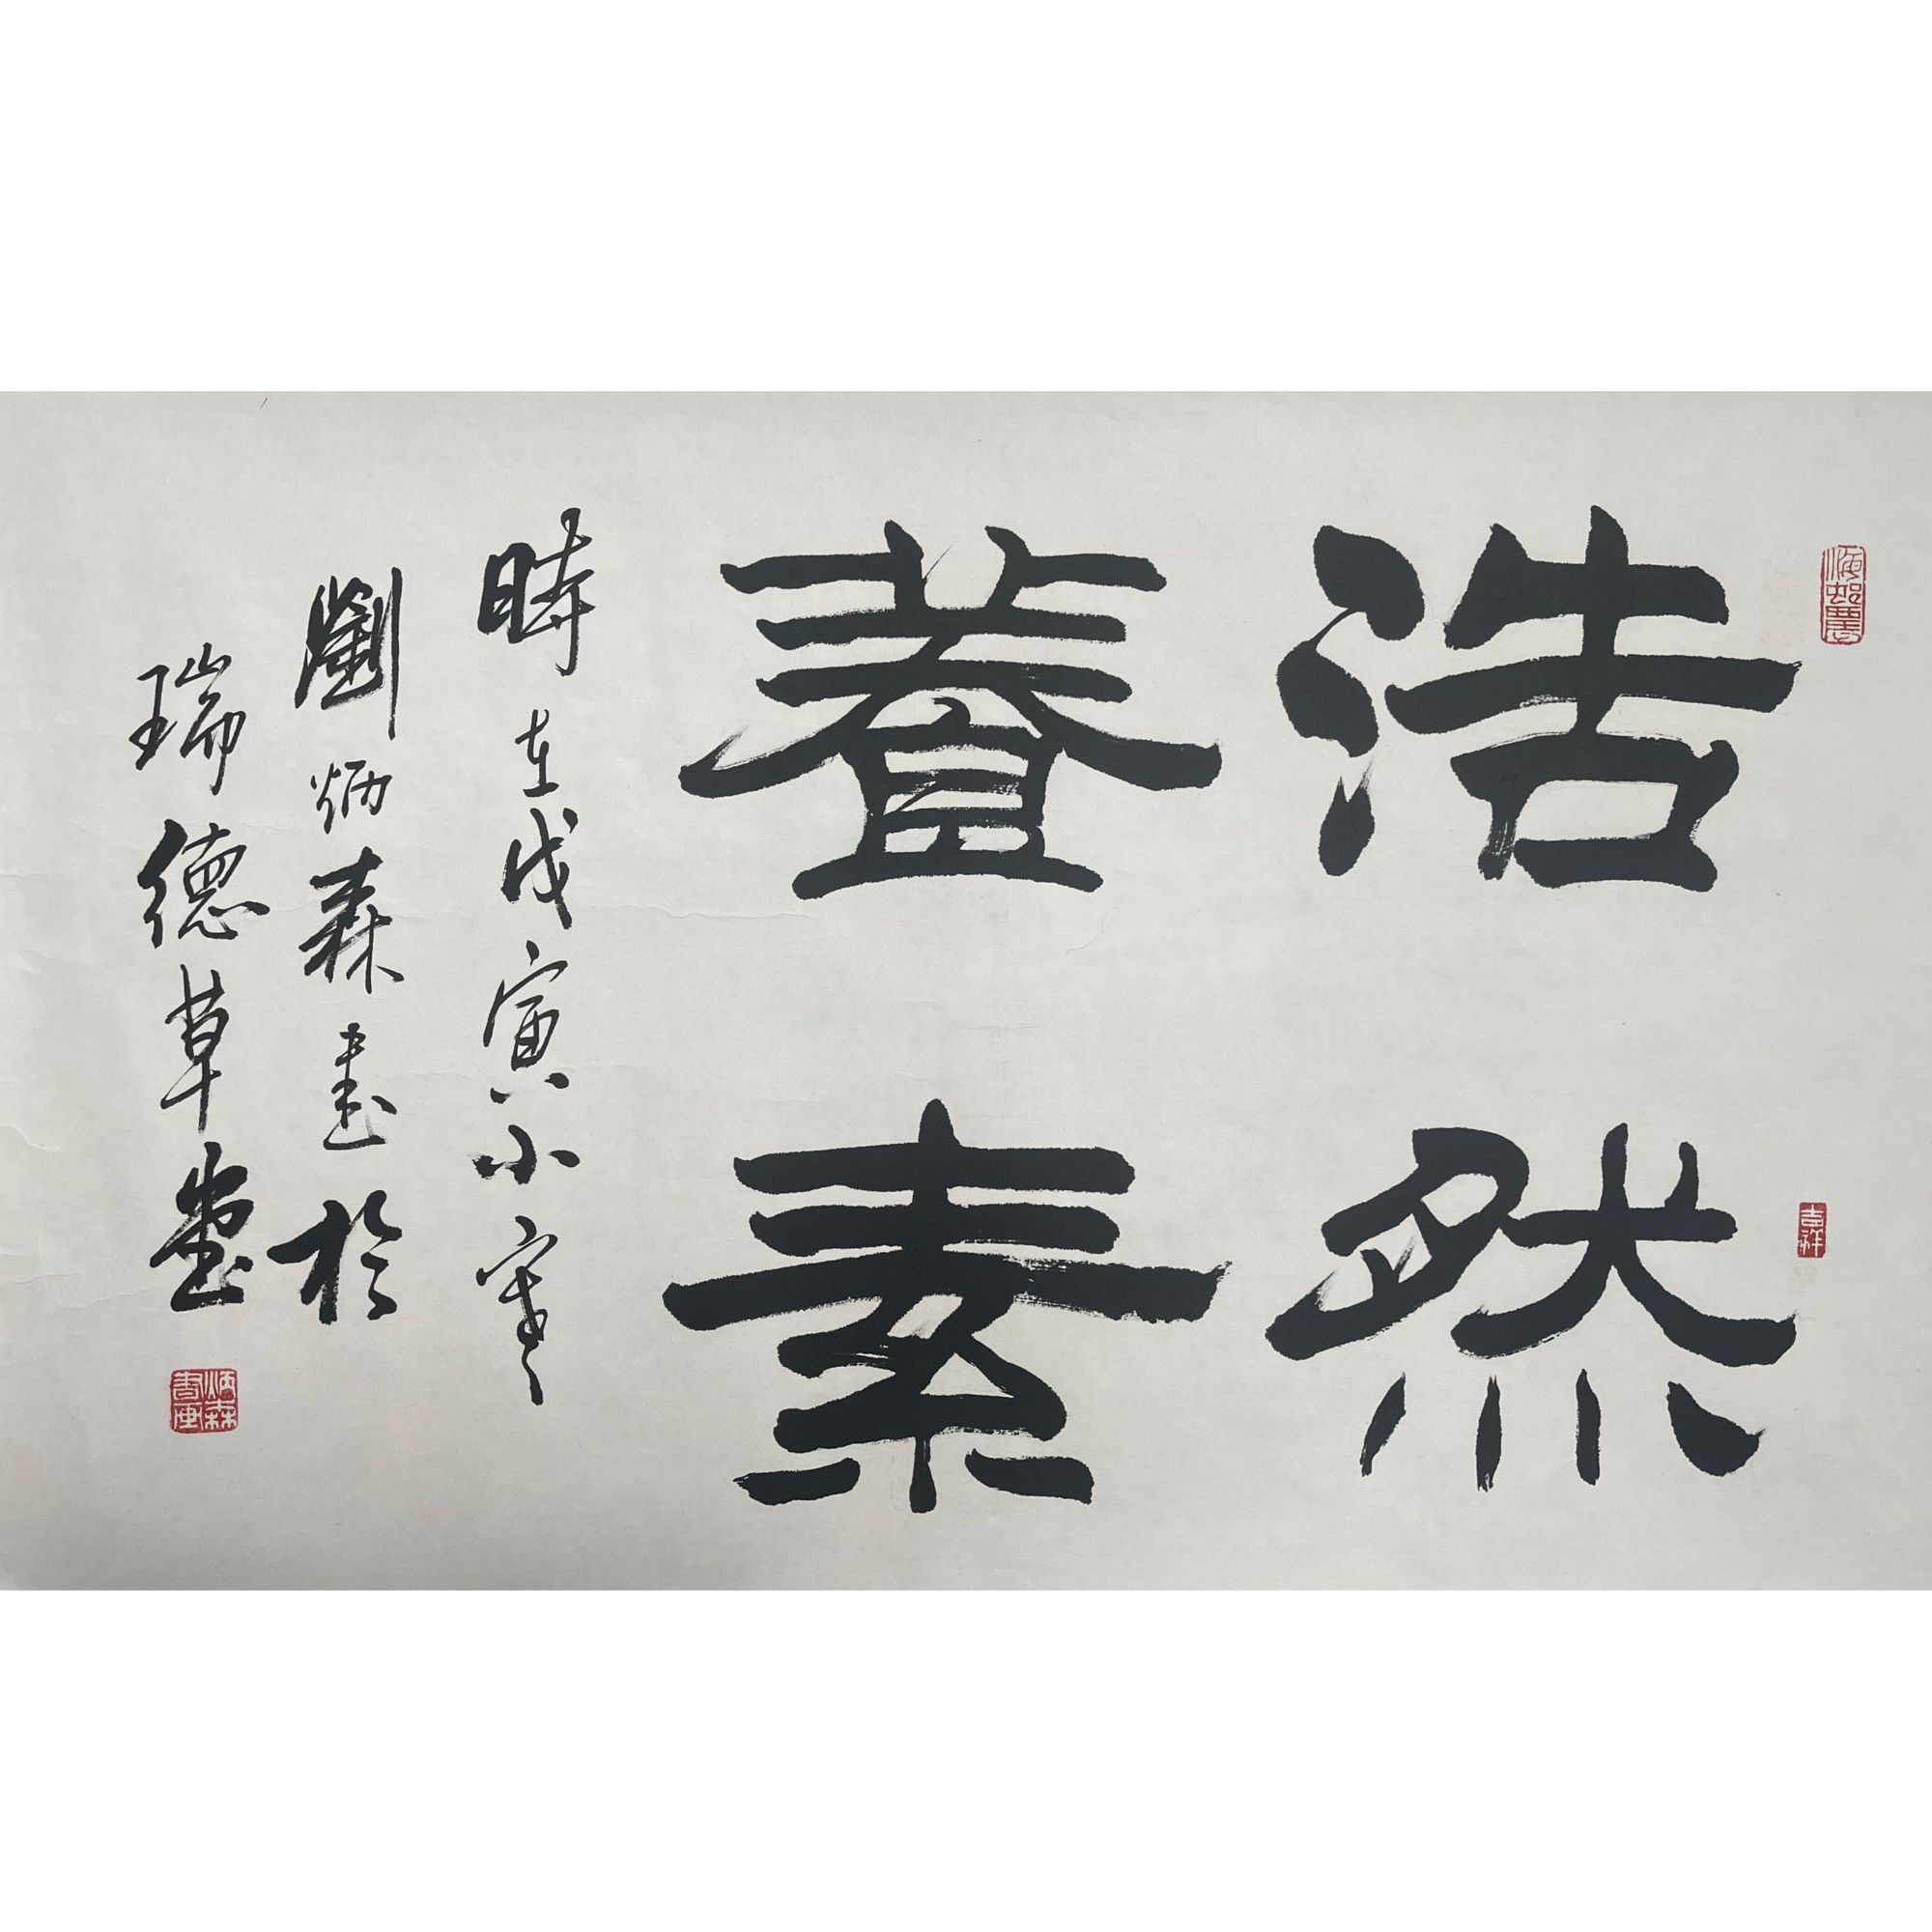 浩然
養素
時在戊寅小寒
劉炳森書於
瑞德草堂
吉祥
炳森書画